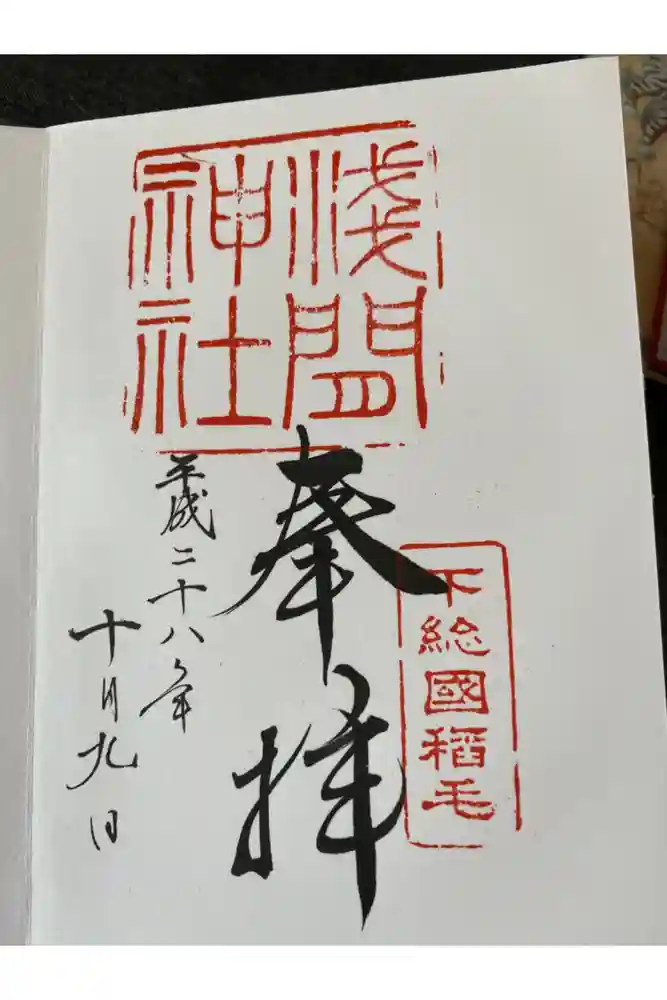 浅間
神社
下総國稲毛
奉拝
平成二十八年
十月九日